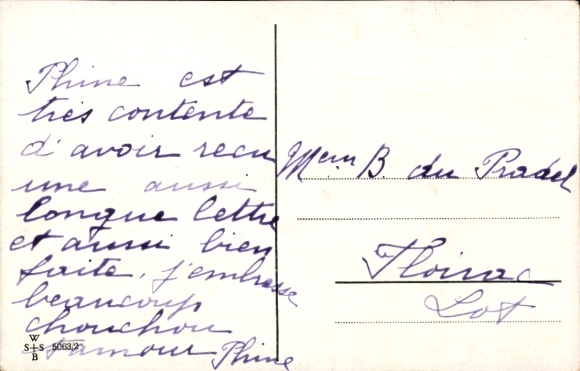 Phine est
très contente
d'avoir recu
une aussi
longue lettre
et aussi bien
faite, j'embrasse
beaucoup
chouchou
et amour Phine
W
S S 5063/2
B
B. du Pradel
Floirac
Lot